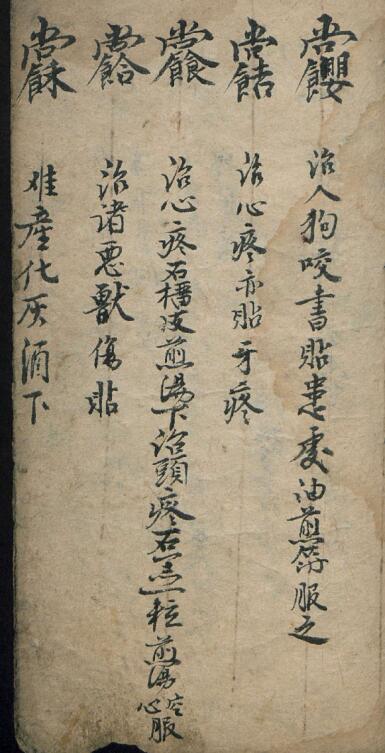 治人狗咬書貼患處油煎符服之
治心疼亦貼牙疼
治心疼石榴皮煎湯下治頭疼石燕一粒煎湯空心服
治諸惡獸傷貼
难產化灰酒下